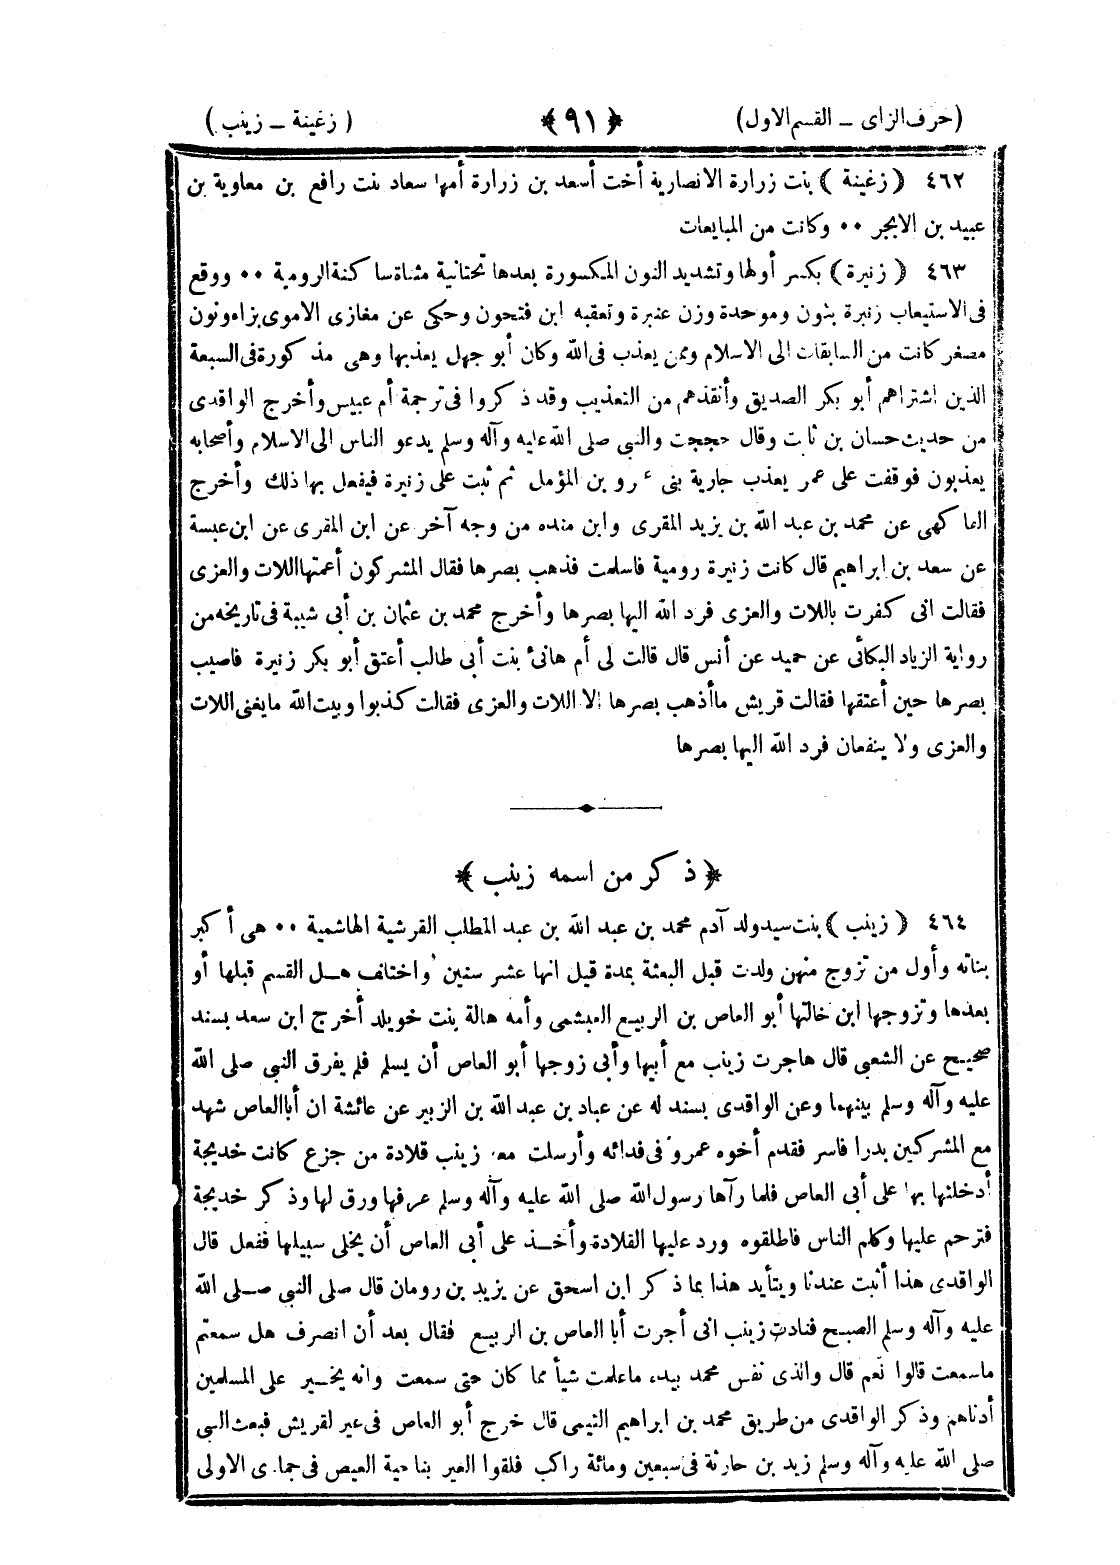 (حرف الزاى ــ القسم الاول)
﴿ ٩١ ﴾
( زغينة ــ زينب )
٤٦٢ ( زغينة ) بنت زرارة الانصارية أخت أسعد بن زرارة أمها سعاد بنت رافع بن معاوية بن
عبيد بن الابجر ۰۰ وكانت من المبايعات
٤٦٣ ( زنيرة ) بكسر أولها وتشديد النون المكسورة بعدها تحتانية مثناة ساكنة الرومية ۰۰ ووقع
فى الاستيعاب زنبرة بنون وموحدة وزن عنبرة وتعقبه ابن فتحون وحكى عن مغازى الاموى بزاء ونون
مصغر كانت من السابقات الى الاسلام وممن يعذب فى الله وكان أبو جهل يعذبها وهى مذكورة فى السبعة
الذين اشتراهم أبو بكر الصديق وأنقذهم من التعذيب وقد ذكروا فى ترجمة أم عبيس وأخرج الواقدى
من حديث حسان بن ثابت وقال حججت والنبى صلى الله عليه وآله وسلم يدعو الناس الى الاسلام وأصحابه
يعذبون فوقفت على عمر يعذب جارية بنى عمرو بن المؤمل ثم ثبت على زنيرة فيفعل بها ذلك وأخرج
الفاكهى عن محمد بن عبد الله بن يزيد المقرى وابن منده من وجه آخر عن ابن المقرى عن ابن عيينة
عن سعد بن ابراهيم قال كانت زنيرة رومية فاسلمت فذهب بصرها فقال المشركون أعمتها اللات والعزى
فقالت انى كفرت باللات والعزى فرد الله اليها بصرها وأخرج محمد بن عثمان بن أبى شيبة فى تاريخه من
رواية الزياد البكائى عن حميد عن أنس قال قالت لى أم هانئ بنت أبى طالب أعتق أبو بكر زنيرة فاصيب
بصرها حين أعتقها فقالت قريش ما أذهب بصرها الا اللات والعزى فقالت كذبوا وبيت الله مايغنى اللات
والعزى ولا ينفعان فرد الله اليها بصرها
﴿ ذكر من اسمه زينب ﴾
٤٦٤ ( زينب ) بنت سيد ولد آدم محمد بن عبد الله بن عبد المطلب القرشية الهاشمية ۰۰ هى أكبر
بناته وأول من تزوج منهن ولدت قبل البعثة بمدة قيل انها عشر سنين واختلف هل القسم قبلها أو
بعدها وتزوجها ابن خالتها أبو العاص بن الربيع العبشمى وأمه هالة بنت خويلد أخرج ابن سعد بسند
صحيح عن الشعبى قال هاجرت زينب مع أبيها وأبى زوجها أبو العاص أن يسلم فلم يفرق النبى صلى الله
عليه وآله وسلم بينهما وعن الواقدى بسند له عن عباد بن عبد الله بن الزبير عن عائشة ان أبا العاص شهد
مع المشركين بدرا فاسر فقدم أخوه عمرو فى فدائه وأرسلت معه زينب قلادة من جزع كانت خديجة
أدخلتها بها على أبى العاص فلما رآها رسول الله صلى الله عليه وآله وسلم عرفها ورق لها وذكر خديجة
فترحم عليها وكلم الناس فاطلقوه ورد عليها القلادة وأخذ على أبى العاص أن يخلى سبيلها ففعل قال
الواقدى هذا أثبت عندنا ويتأيد هذا بما ذكر ابن اسحق عن يزيد بن رومان قال صلى النبى صلى الله
عليه وآله وسلم الصبح فنادت زينب انى أجرت أبا العاص بن الربيع فقال بعد أن انصرف هل سمعتم
ماسمعت قالوا نعم قال والذى نفس محمد بيده ماعلمت شيأ مما كان حتى سمعت وانه يجير على المسلمين
أدناهم وذكر الواقدى من طريق محمد بن ابراهيم التيمى قال خرج أبو العاص فى عير لقريش فبعث النبى
صلى الله عليه وآله وسلم زيد بن حارثة فى سبعين ومائة راكب فلقوا العير بناحية العيص فى جمادى الاولى